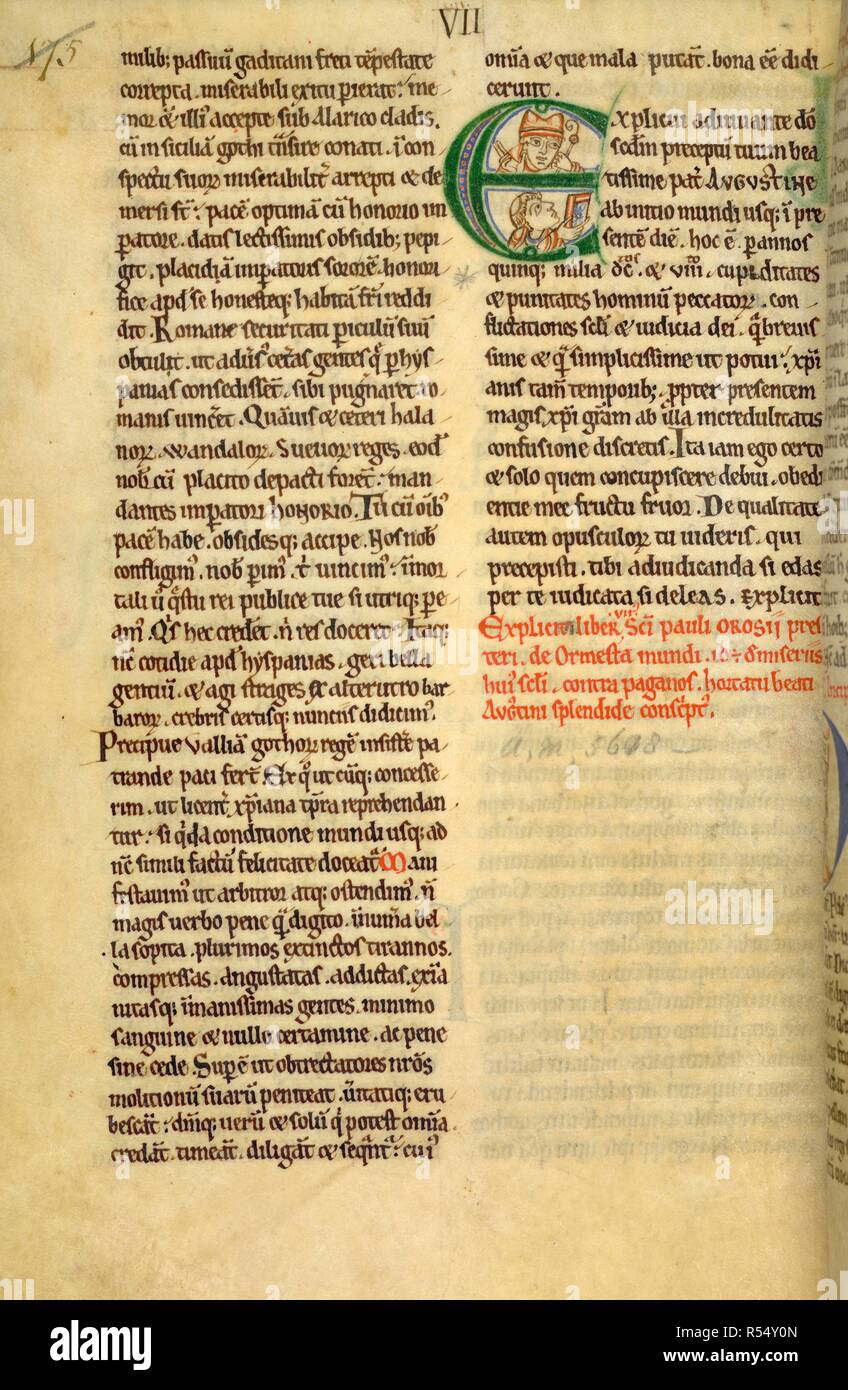 VII
175
milib; passuū gaditani freti tēpestate
correpta. miserabili exitu perierat: me
mor & illi' accepte sub Alarico cladis.
cū in siciliā gothi trāsire conati. ī con
spectu suoꝝ miserabilit̄ arrepti & de
mersi st̄: pacē optimā cū honorio im
ꝑatore. datis lectissimis obsidib; pepi
git. placidiā imꝑatoris sororē. honori
fice apđ se honesteq; habitā fr̄i reddi
dit. Romane securitati ꝑiculū suū
obtulit. ut adūs' cēt̄as gentes q̄ ꝑ hys
panias consedissēt. sibi pugnaret ro
manis uincēt. Quāuis & ceteri hala
noꝝ. wandaloꝝ. Sueuoꝝ reges. eođ
nob. cū placito depacti forēt: man
dantes imꝑatori honorio. Tu cū oīb'
pacē habe. obsidesq; accipe. Nos nob'
confligim'. nob' ꝑim'. t' uincim': īmor
tali ū q̄stu rei publice tue si utriq; pe
am'. Q's hec credēt. n̄ res doceret. Itaq;
nc̄ cotidie apđ hyspanias. geri bella
gentiū. & agi strages ex alterutro bar
baroꝝ. crebris certisq; nunciis didicim'.
Precipue valliā gothoꝝ regē insistē pa
trande paci fert̄. Ex q'ut cūq; concesse
rim. ut licent̄ xp̄iana tp̄ra reprehendan
tur: si q'd a conditione mundi usq; ad
nc̄ simili factū felicitate doceat̄. Mani
festauim' ut arbitror atq; ostendim'. n̄
magis uerbo pene q̄ digito. īnum̄a bel
la sopita. plurimos extinctos tirannos.
compressas. angustatas. addictas. exīa
nitasq; īmanissimas gentes. minimo
sanguine & nullo certamine. ac pene
sine cede. Supē ut obtrectatores nr̄os
molitionū suarū peniteat. ūitatiq; eru
bescāt: dm̄q; uerū & solū q' potest omīa
credāt. timeāt. diligāt & seq̄nt̄: cui'
omīa & que mala putāt. bona eē didi
cerunt.
Explicui adiuuante dō
scđm preceptū tuum bea
tissime pat̄ AVGVSTINE
ab initio mundi usq; ī pre
sentē diē. hoc ē. ꝑ annos
quinq; milia dc̄os. & viii. cupiditates
& punitates hominū peccatoꝝ. con
flictationes scl̄i & iudicia dei. q̄ breuis
sime & q̄ simplicissime ut potui: xp̄i
anis tam̄ temporib; ꝓpter presentem
magis xp̄i gr̄am ab illa incredulitatis
confusione discretis. Ita iam ego certo
& solo quem concupiscere debui. obedi
entie mee fructu fruor. De qualitate
autem opusculoꝝ tu uideris. qui
precepisti. tibi adiudicanda si edas
per te iudicata si deleas. Explicit
Explicit liber .vii. Sc̄i pauli OROSII pres
teri. de Ormesta mundi. id ÷ d' miseriis
hui' scl̄i. contra paganos. hortatu beati
Avg̅tini splendide conscpt'.
a.m. 5618
alamy
Image ID: R54Y0N
www.alamy.com